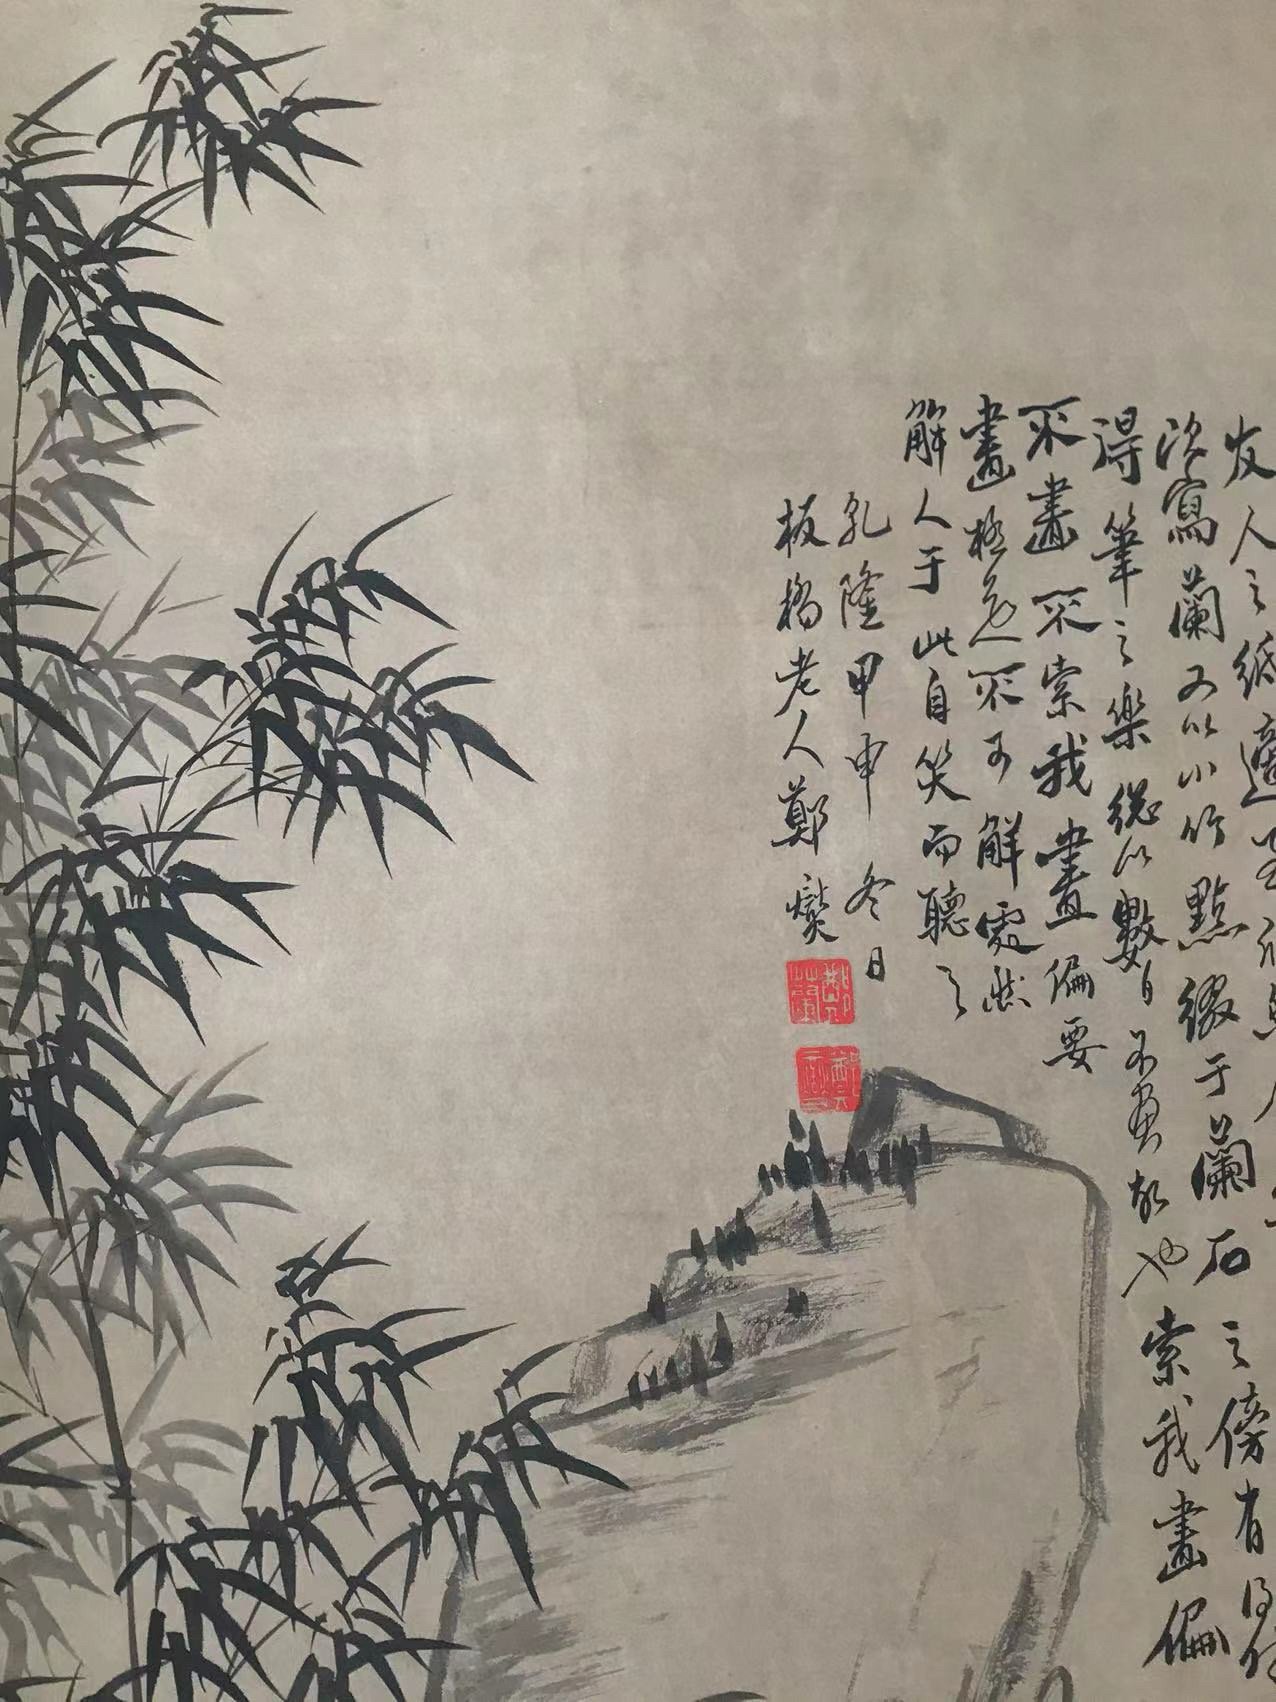 友人之紙適
次寫蘭又以小竹點綴于蘭石之傍有
得筆之樂總以數日不畫故也索我畫偏
不畫不索我畫偏要
畫極是不可解處然
解人于此自笑而聽之
乾隆甲申冬日
板橋老人鄭燮